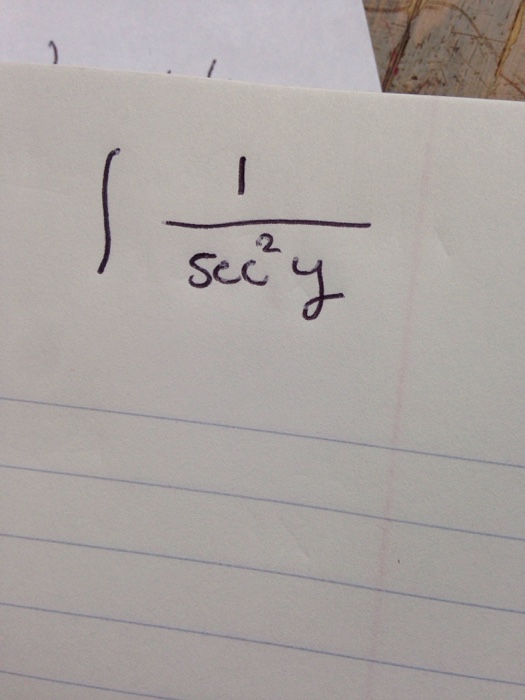 ∫ 1 / sec² y